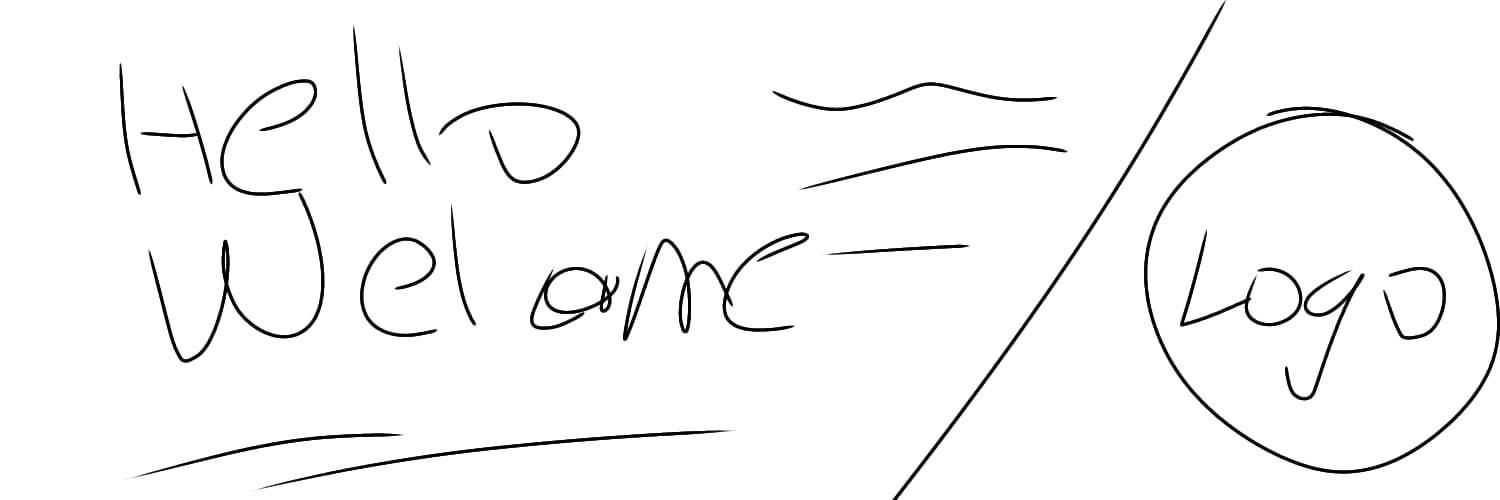 Hello
Welcome
Logo